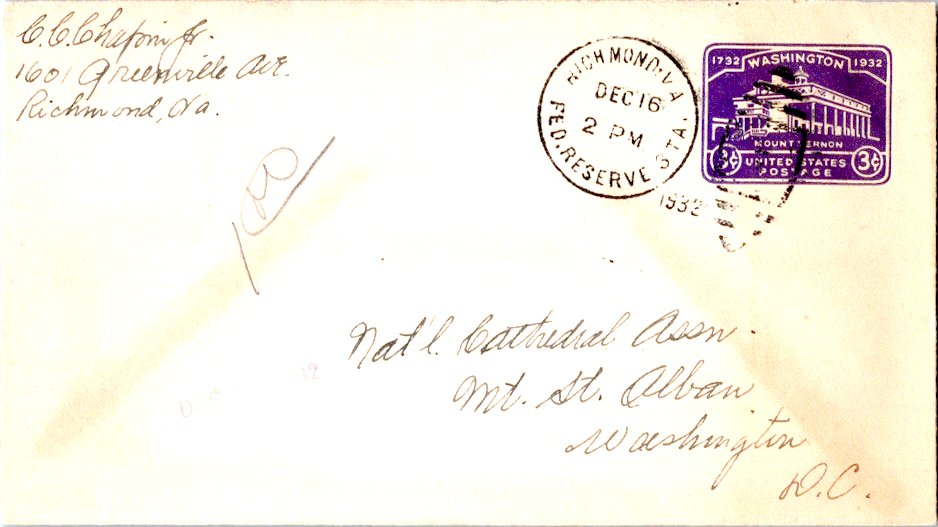 C.C. Chapin Jr.
1601 Greenville Ave.
Richmond, Va.
RICHMOND, VA
DEC 16
2 PM
FED. RESERVE STA.
1932
1732 WASHINGTON 1932
MOUNT VERNON
3¢ UNITED STATES 3¢
POSTAGE
100
Nat'l. Cathedral Assn.
Mt. St. Alban
Washington
D.C.